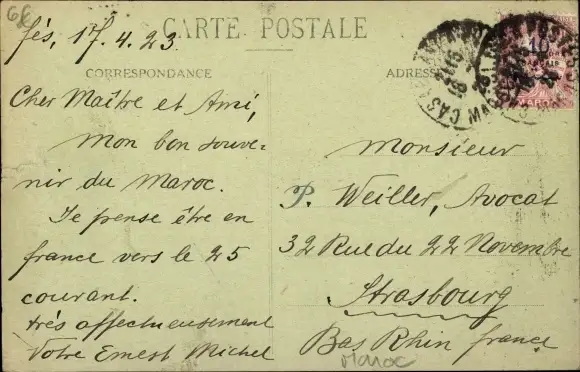 CARTE POSTALE
fés, 17. 4. 23.
CORRESPONDANCE
ADRESSE
Cher Maître et Ami,
Mon bon souve-
nir du Maroc.
Je pense être en
france vers le 25
courant.
très affectueusement
Votre Ernest Michel
Monsieur
P. Weiller, Avocat
32 Rue du 22 Novembre
Strasbourg
Bas Rhin france
Maroc
10
MAROC